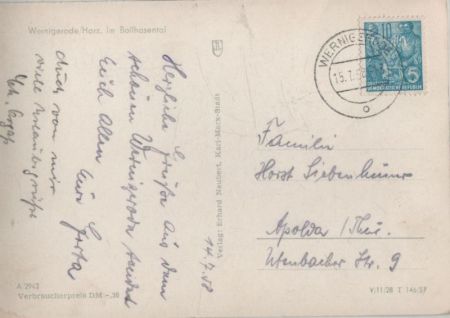 Wernigerode/Harz. Im Bollhasental
14.7.58
Herzliche Grüße aus dem
schönen Wernigerode sendet
Euch allen Eure Gerta
Auch von mir
viele Urlaubsgrüße
A 2943
Verbraucherpreis DM -.30
Verlag: Erhard Neubert, Karl-Marx-Stadt
WERNIGERODE
15.7.58
5
DEMOKRATISCHE REPUBLIK
Familie
Horst Liebenhüner
Apolda / Thür.
Utenbacher Str. 9
V/11/28 T 146/57